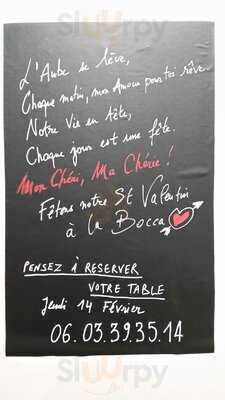 Sluurpy
L'Aube se lève,
Chaque matin, mon Amour pour toi rêve.
Notre Vie en tête,
Chaque jour est une fête.
Mon Chéri, Ma Chérie !
Fêtons notre St Valentin
à la Bocca
PENSEZ À RESERVER
VOTRE TABLE
Jeudi 14 Février
06.03.39.35.14
Sluurpy